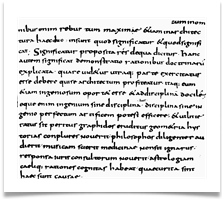 cum in om
nibus enim rebus tum maxime etiam in archi tec
tura haec duo insunt quod significatur et quod signifi
cat. Significatur proposita res de qua dicitur. hanc
autem significat demonstratio rationibus doctrinarū
explicata. quare uidetur utraq; parte exercitatus
esse debere qui se architectum profiteatur. itaq;
eum ingeniosum oportet esse et ad disciplinā docilē
neque enim ingenium sine disciplina disciplina sine in
genio perfectum artificem potest efficere. et ut litte
ratus sit peritus graphidos eruditus geometria his
torias complures nouerit philosophos diligenter au
dierit musicam scierit medicinae non sit ignarus
responsa iuris consultorum nouerit astrologiam
caeliq; rationes cognitas habeat quae cur ita sint
haec sunt causae.